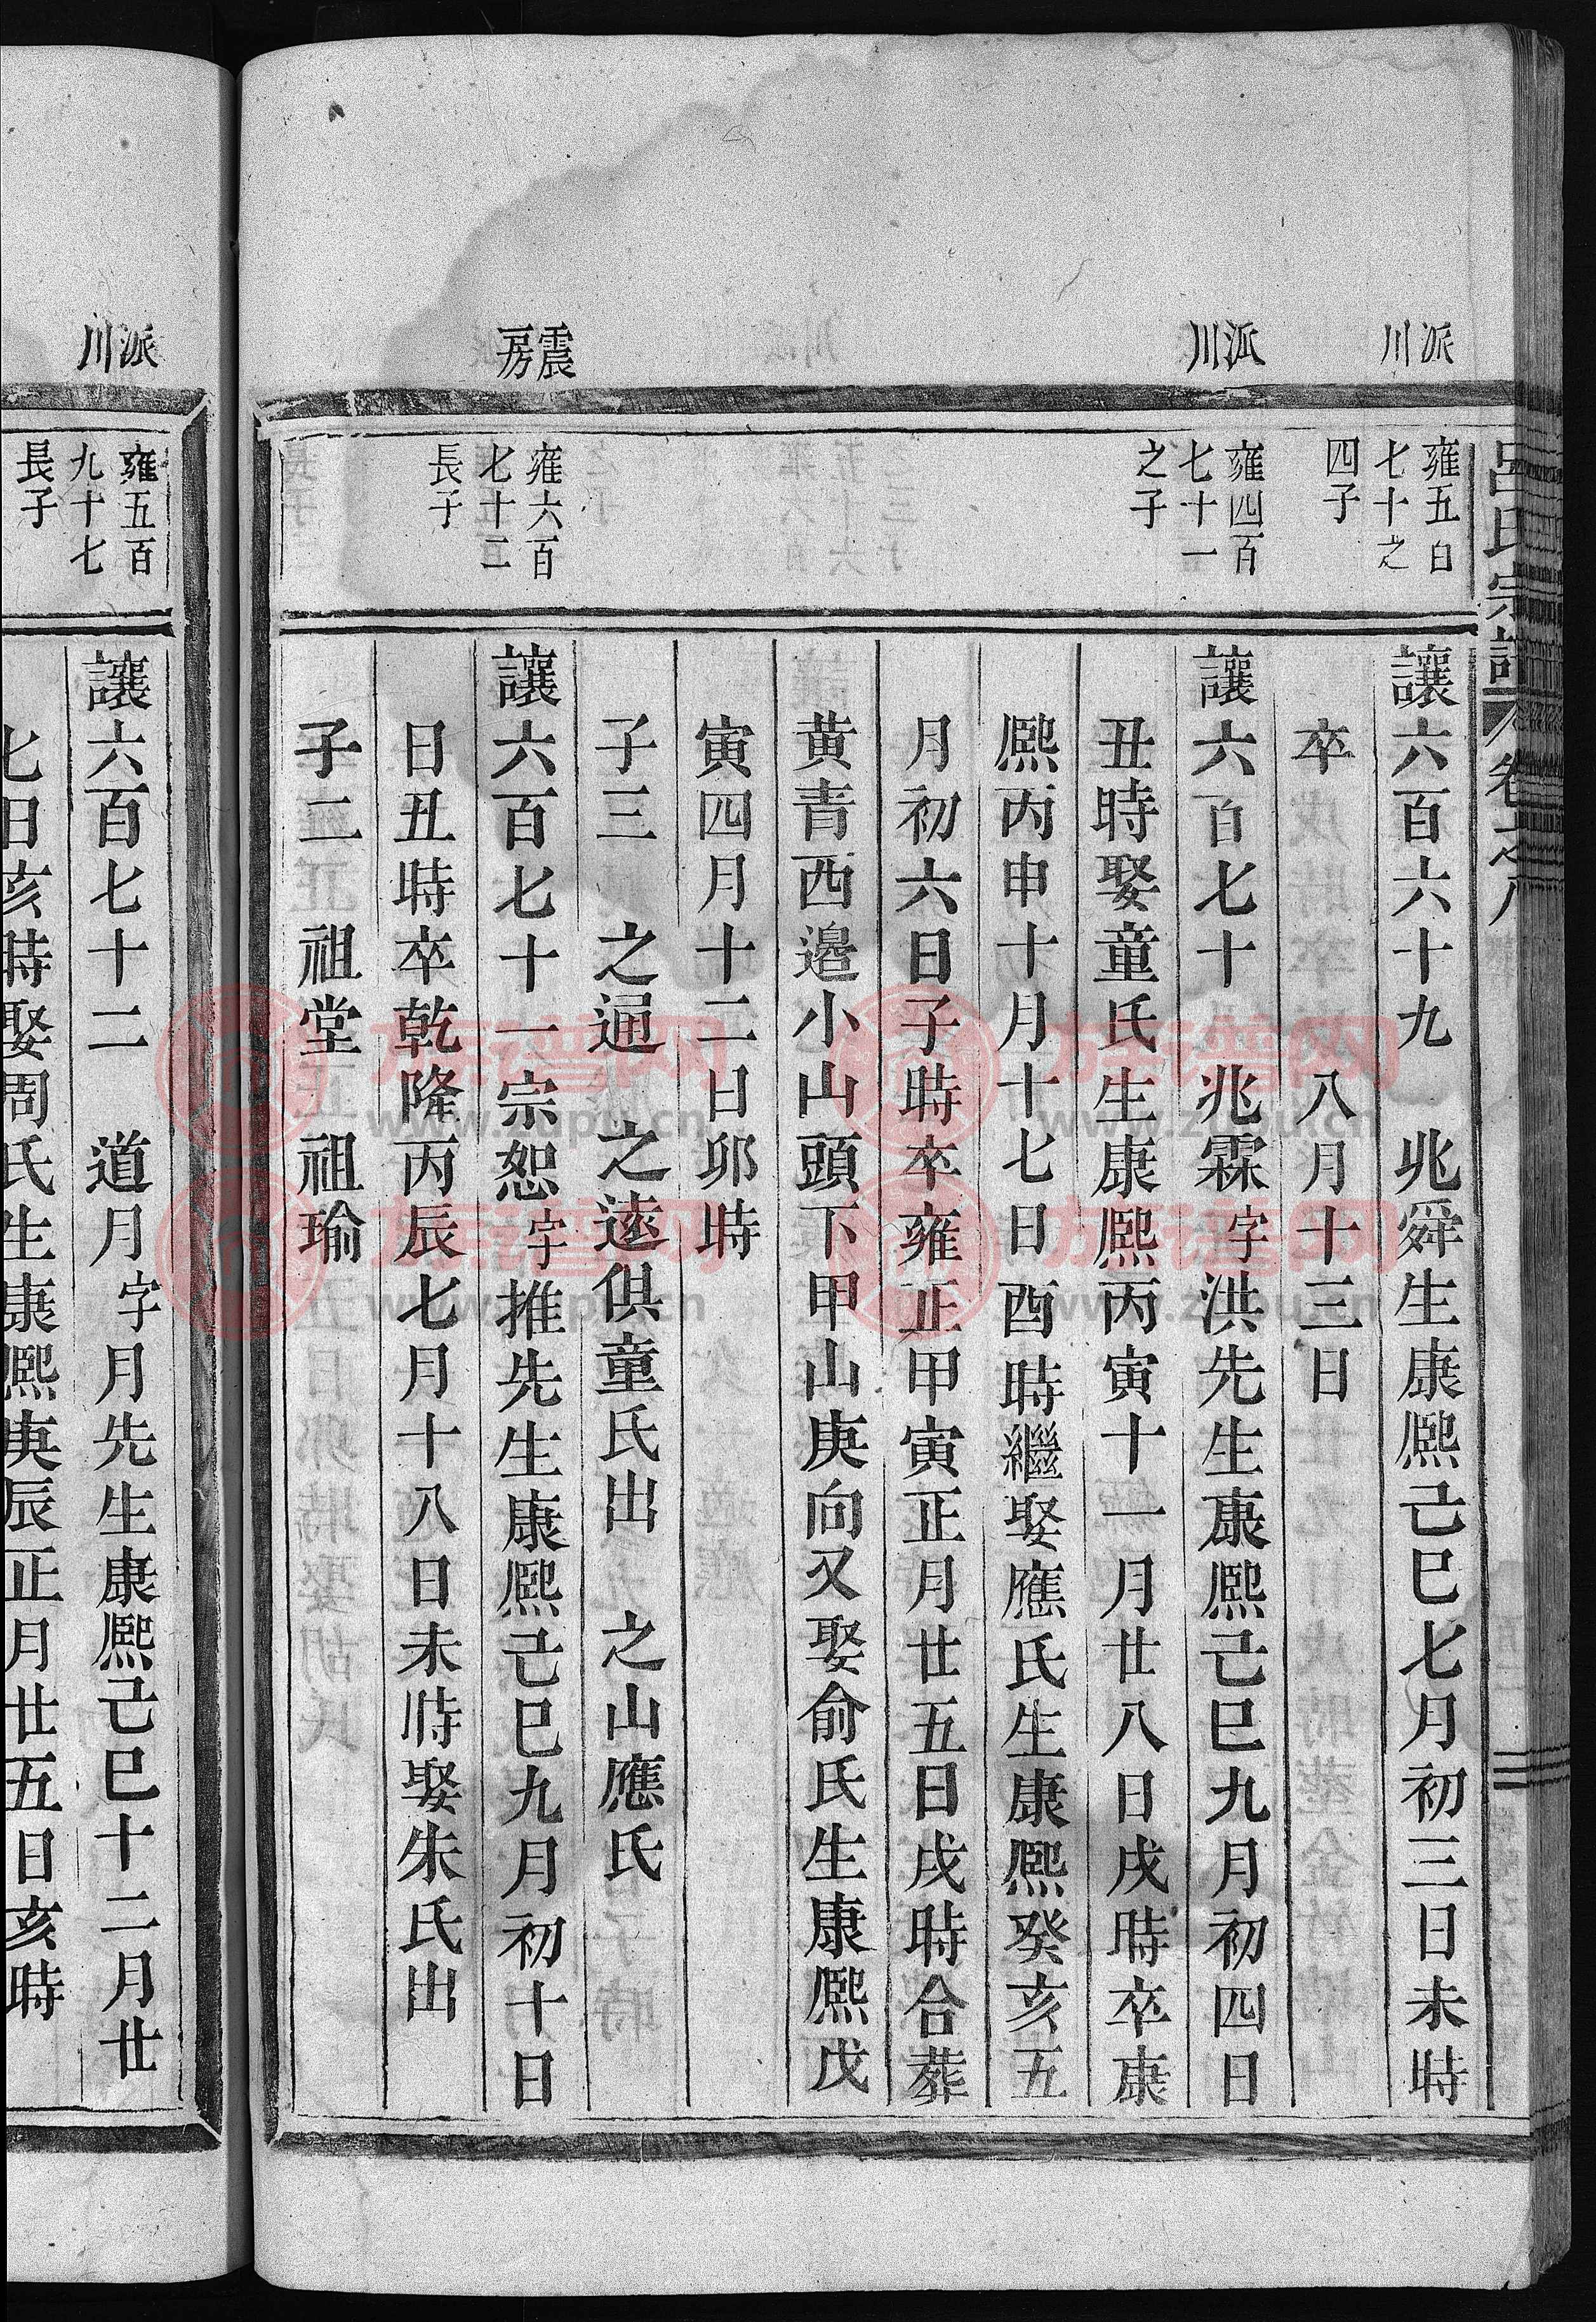 呂氏宗譜 卷之八
派川
雍五百七十之四子
讓六百六十九 兆舜生康熙己巳七月初三日未時
卒 八月十三日
派川
雍四百七十一之子
讓六百七十 兆霖字洪先生康熙己巳九月初四日
丑時娶童氏生康熙丙寅十一月廿八日戌時卒康
熙丙申十月十七日酉時繼娶應氏生康熙癸亥五
月初六日子時卒雍正甲寅正月廿五日戌時合葬
黄青西邉小山頭下甲山庚向又娶俞氏生康熙戊
寅四月十二日卯時
子三 之通 之遠俱童氏出 之山應氏
震房
雍六百七十二長子
讓六百七十一宗恕字推先生康熙己巳九月初十日
日丑時卒乾隆丙辰七月十八日未時娶朱氏出
子二 祖堂 祖瑜
派川
雍五百九十七長子
讓六百七十二 道月字月先生康熙己巳十二月廿
七日亥時娶周氏生康熙庚辰正月廿五日亥時
族谱网
www.zupu.cn
族谱网
www.zupu.cn
族谱网
www.zupu.cn
族谱网
www.zupu.cn